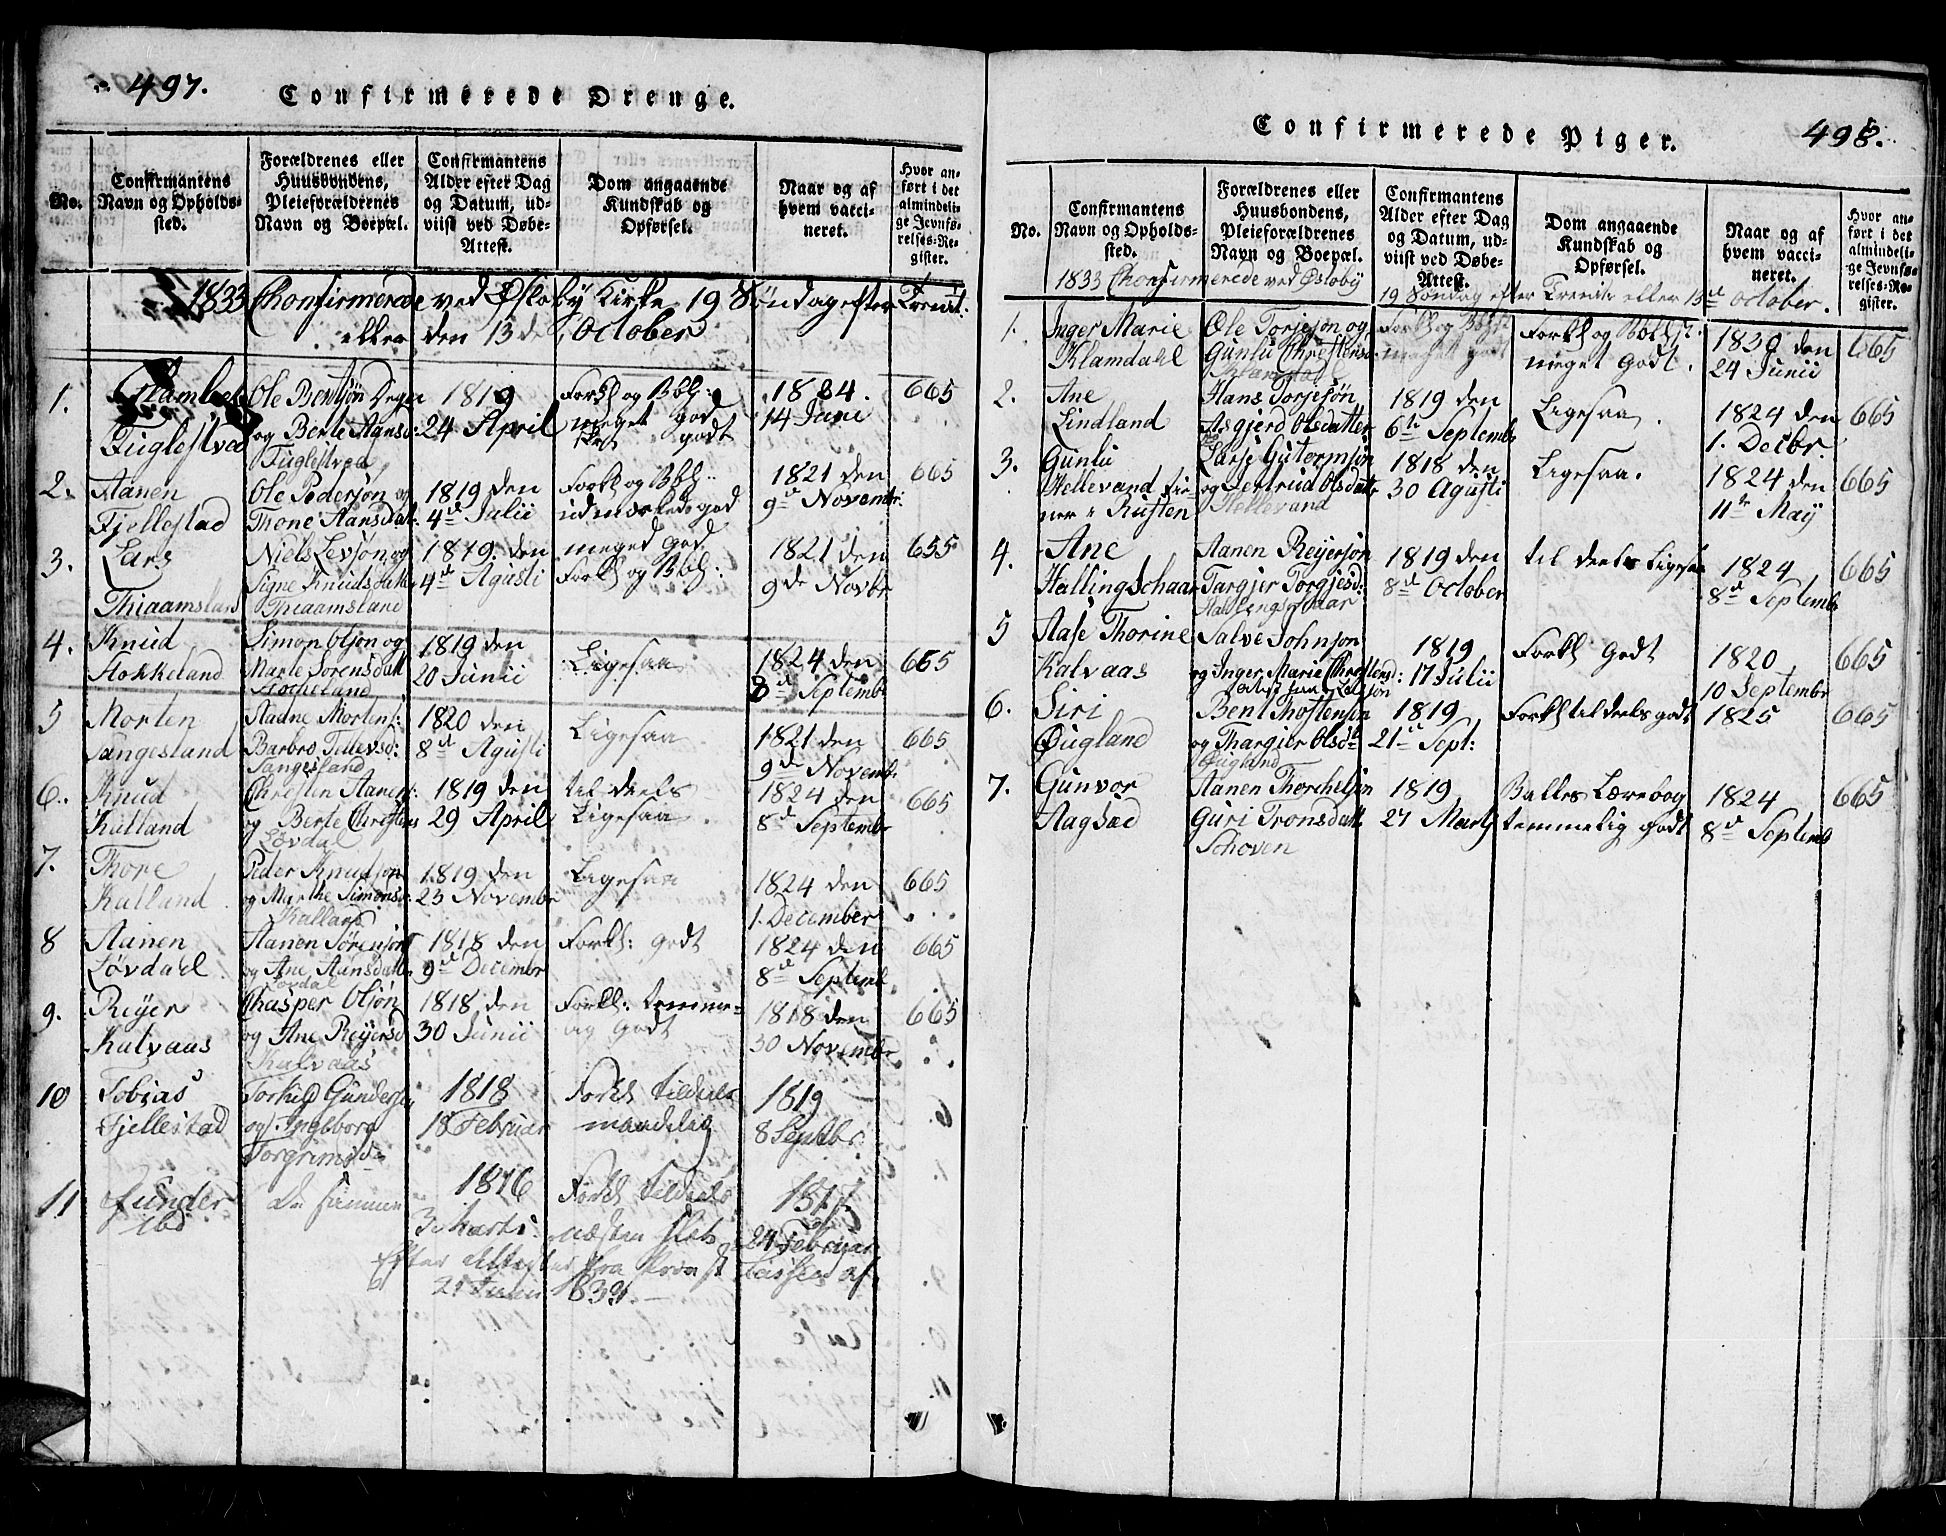 497.
Confirmerede Drenge.
No.
Confirmantens Navn og Opholdssted.
Forældrenes eller Huusbondens, Pleieforældrenes Navn og Boepæl.
Confirmantens Alder efter Dag og Datum, udviist ved Døbe-Attest.
Dom angaaende Kundskab og Opførsel.
Naar og af hvem vaccineret.
Hvor anført i det almindelige Jevnførelses-Register.
1833 Chonfirmerede ved Øsloby Kirke 19 Søndag efter Trenit:
eller den 13 de October
1. Fuglestved
Ole Bentsøn Deger og Berte Aansd: Fuglestved
1819 24 April
Forkl og Bbl: meget god godt
1824. 14 Juni
665
2. Aanen Fjellestad
Ole Pedersøn og Thone Aansdat:
1819 den 4de Julii
Forkl og Bbl: udmærkede god
1821 den 9de Novembr.
665
3. Lars Thiaamsland
Niels Levsøn og Signe Knudsdatter Thiaamsland
1819. den 4de Agusti
meged god Forkl og Bbl:
1821 den 9de Novbr
655
4. Knud Hokkeland
Simon Olsøn og Marte Sorensdatt Hokkeland
1819 den 20 Junii
Ligesaa
1824 den 8de Septembr
665
5 Morten Tangesland
Aadne Mortens: Barbro Tellevsd: Tangesland
1820 den 8de Agusti
Ligesaa
1821 den 9de Novemb.
665
6. Knud Kalland
Christen Aanens: og Berte Christens Løvdal
1819 den 29 April
til deels Ligesaa.
1824 den 8de Septembr
665
7. Thore Kalland
Peder Knudsøn og Marthe Simonsd: Kalland
1819 den 23 Novembr
Ligesaa
1824 den 1. December
665
8 Aanen Løvdael
Aanen Sørensøn og Ane Aansdatt. Løvdal
1818 den 9de Decembr
Forkl: godt
1824 den 8de Septemb
665
9. Reyer Kalvaas
Chasper Olsøn og Ane Reyersd Kalvaas
1818 den 30 Junii
Forkl: temme- og godt
1818 den 30 Novembr
665
10 Tobias Fjellestad
Torkild Gundersen og Ingeborg Torgrimsd:
1818 18 Februar
Forkl tildeels maadelig
1819 8 Septbr.
11 Gunder ibd
De samme
1816 3 Marti
Forkl tildeels næsten slet
1817. 24 Februar
Efter Attester fra Provst af
21 Junii 1833.
498.
Confirmerede Piger.
No.
Confirmantens Navn og Opholdssted.
Forældrenes eller Huusbondens, Pleieforældrenes Navn og Boepæl.
Confirmantens Alder efter Dag og Datum, udviist ved Døbe-Attest.
Dom angaaende Kundskab og Opførsel.
Naar og af hvem vaccineret.
Hvor anført i det almindelige Jevnførelses-Register.
1833 Chonfirmerede ved Øsloby 19 Søndag efter Trenit: eller 13de October.
1. Inger Marie Klamdahl
Ole Torjesøn og Gunlu Christensd
Forkl og Bbl: meget godt
Forkl og Bbl: meget godt.
1830 den 24 Junii
665
2. Ane Lindland
Hans Torjesøn Asgjerd Olsdatter
1819 den 6te Septembr
Ligesaa.
1824 den 1. Decbr.
665
3. Gunlu Hellevand tiener Rusten
Larse Gutormsøn og Gertrud Olsdattr Hellevand
1818 den 30 Agusti
Ligesaa.
1824 den 11te May
665
4. Ane Hallingschaar
Aanen Reyersøn Targjer Torgjesd: Hallingschaar
1819 den 8de October
til deels Ligesaa
1824 8de Septembr
665
5 Aase Thorine Kalvaas
Salve Johnsøn og Inger Marie Christensd:
1819 17 Julii
Forkl Godt
1820 10 Septembr
665
6. Siri Øugland
Bent Thostensøn og Thargier Olsdt Øugland
1819 21de Sept:
Forkl til deels godt
1825
665
7. Gunvor Aagsæd
Aanen Thorchelsøn Guri Tronsdatt Schoven
1819 27 Marts
Balles Lærebog temmelig godt
1824 8de Septemb
665